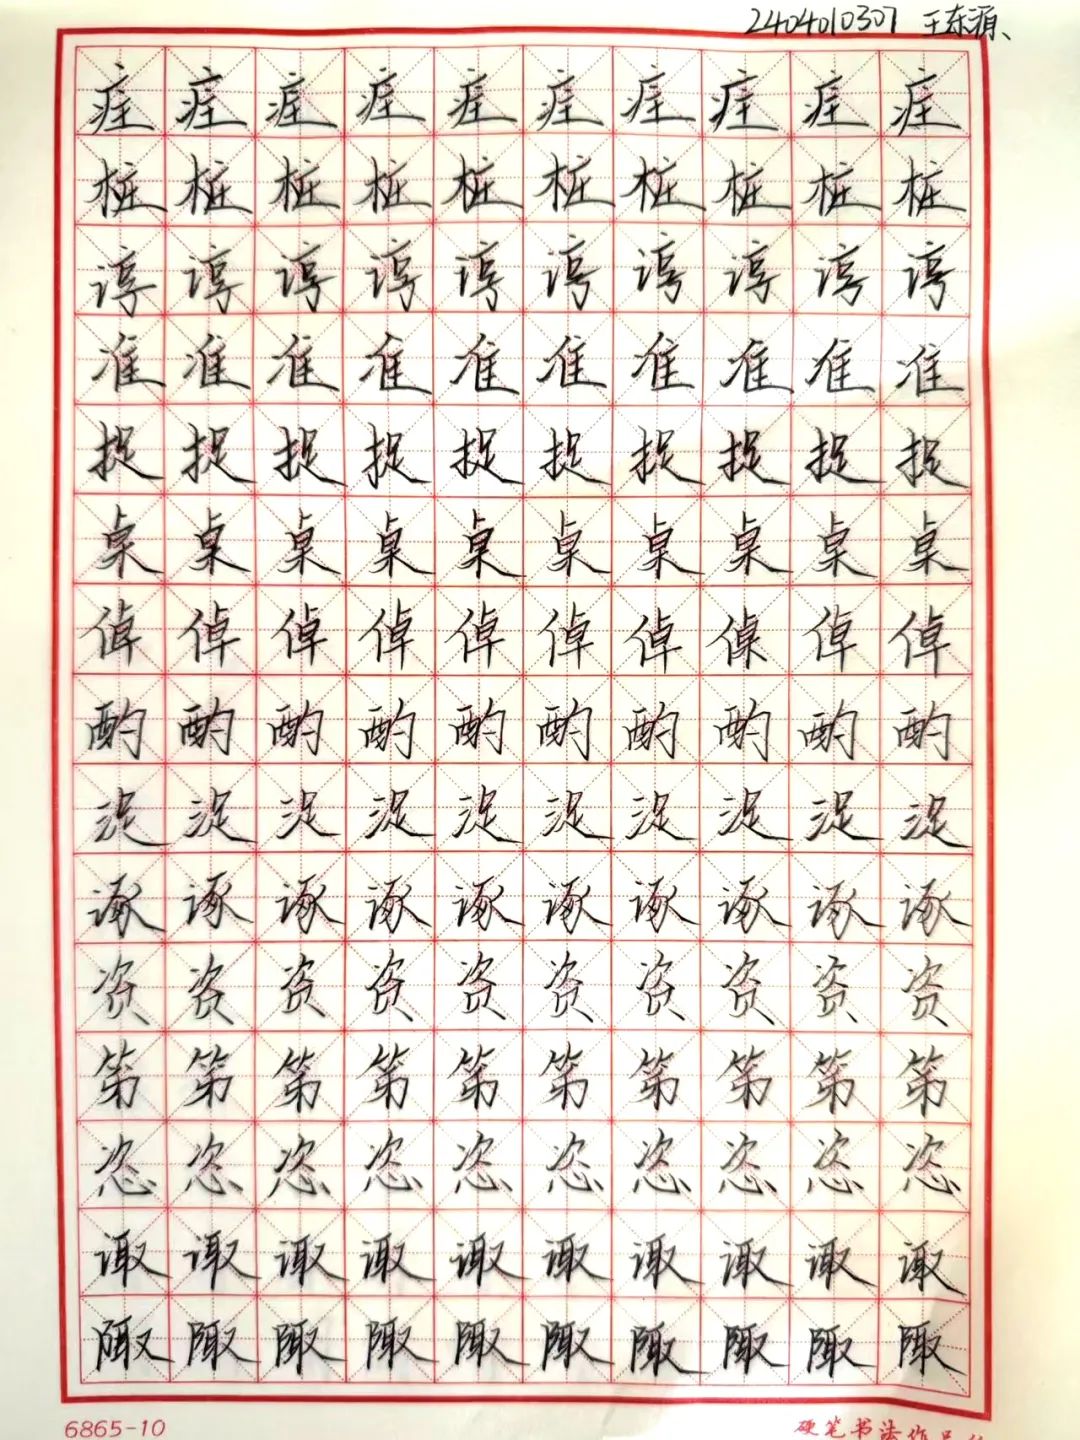 2404010307 王东源
疰疰疰疰疰疰疰疰疰疰
桩桩桩桩桩桩桩桩桩桩
谆谆谆谆谆谆谆谆谆谆
准准准准准准准准准准
捉捉捉捉捉捉捉捉捉捉
桌桌桌桌桌桌桌桌桌桌
倬倬倬倬倬倬倬倬倬倬
酌酌酌酌酌酌酌酌酌酌
浞浞浞浞浞浞浞浞浞浞
诼诼诼诼诼诼诼诼诼诼
资资资资资资资资资资
笫笫笫笫笫笫笫笫笫笫
恣恣恣恣恣恣恣恣恣恣
诹诹诹诹诹诹诹诹诹诹
陬陬陬陬陬陬陬陬陬陬
6865-10 硬笔书法作品